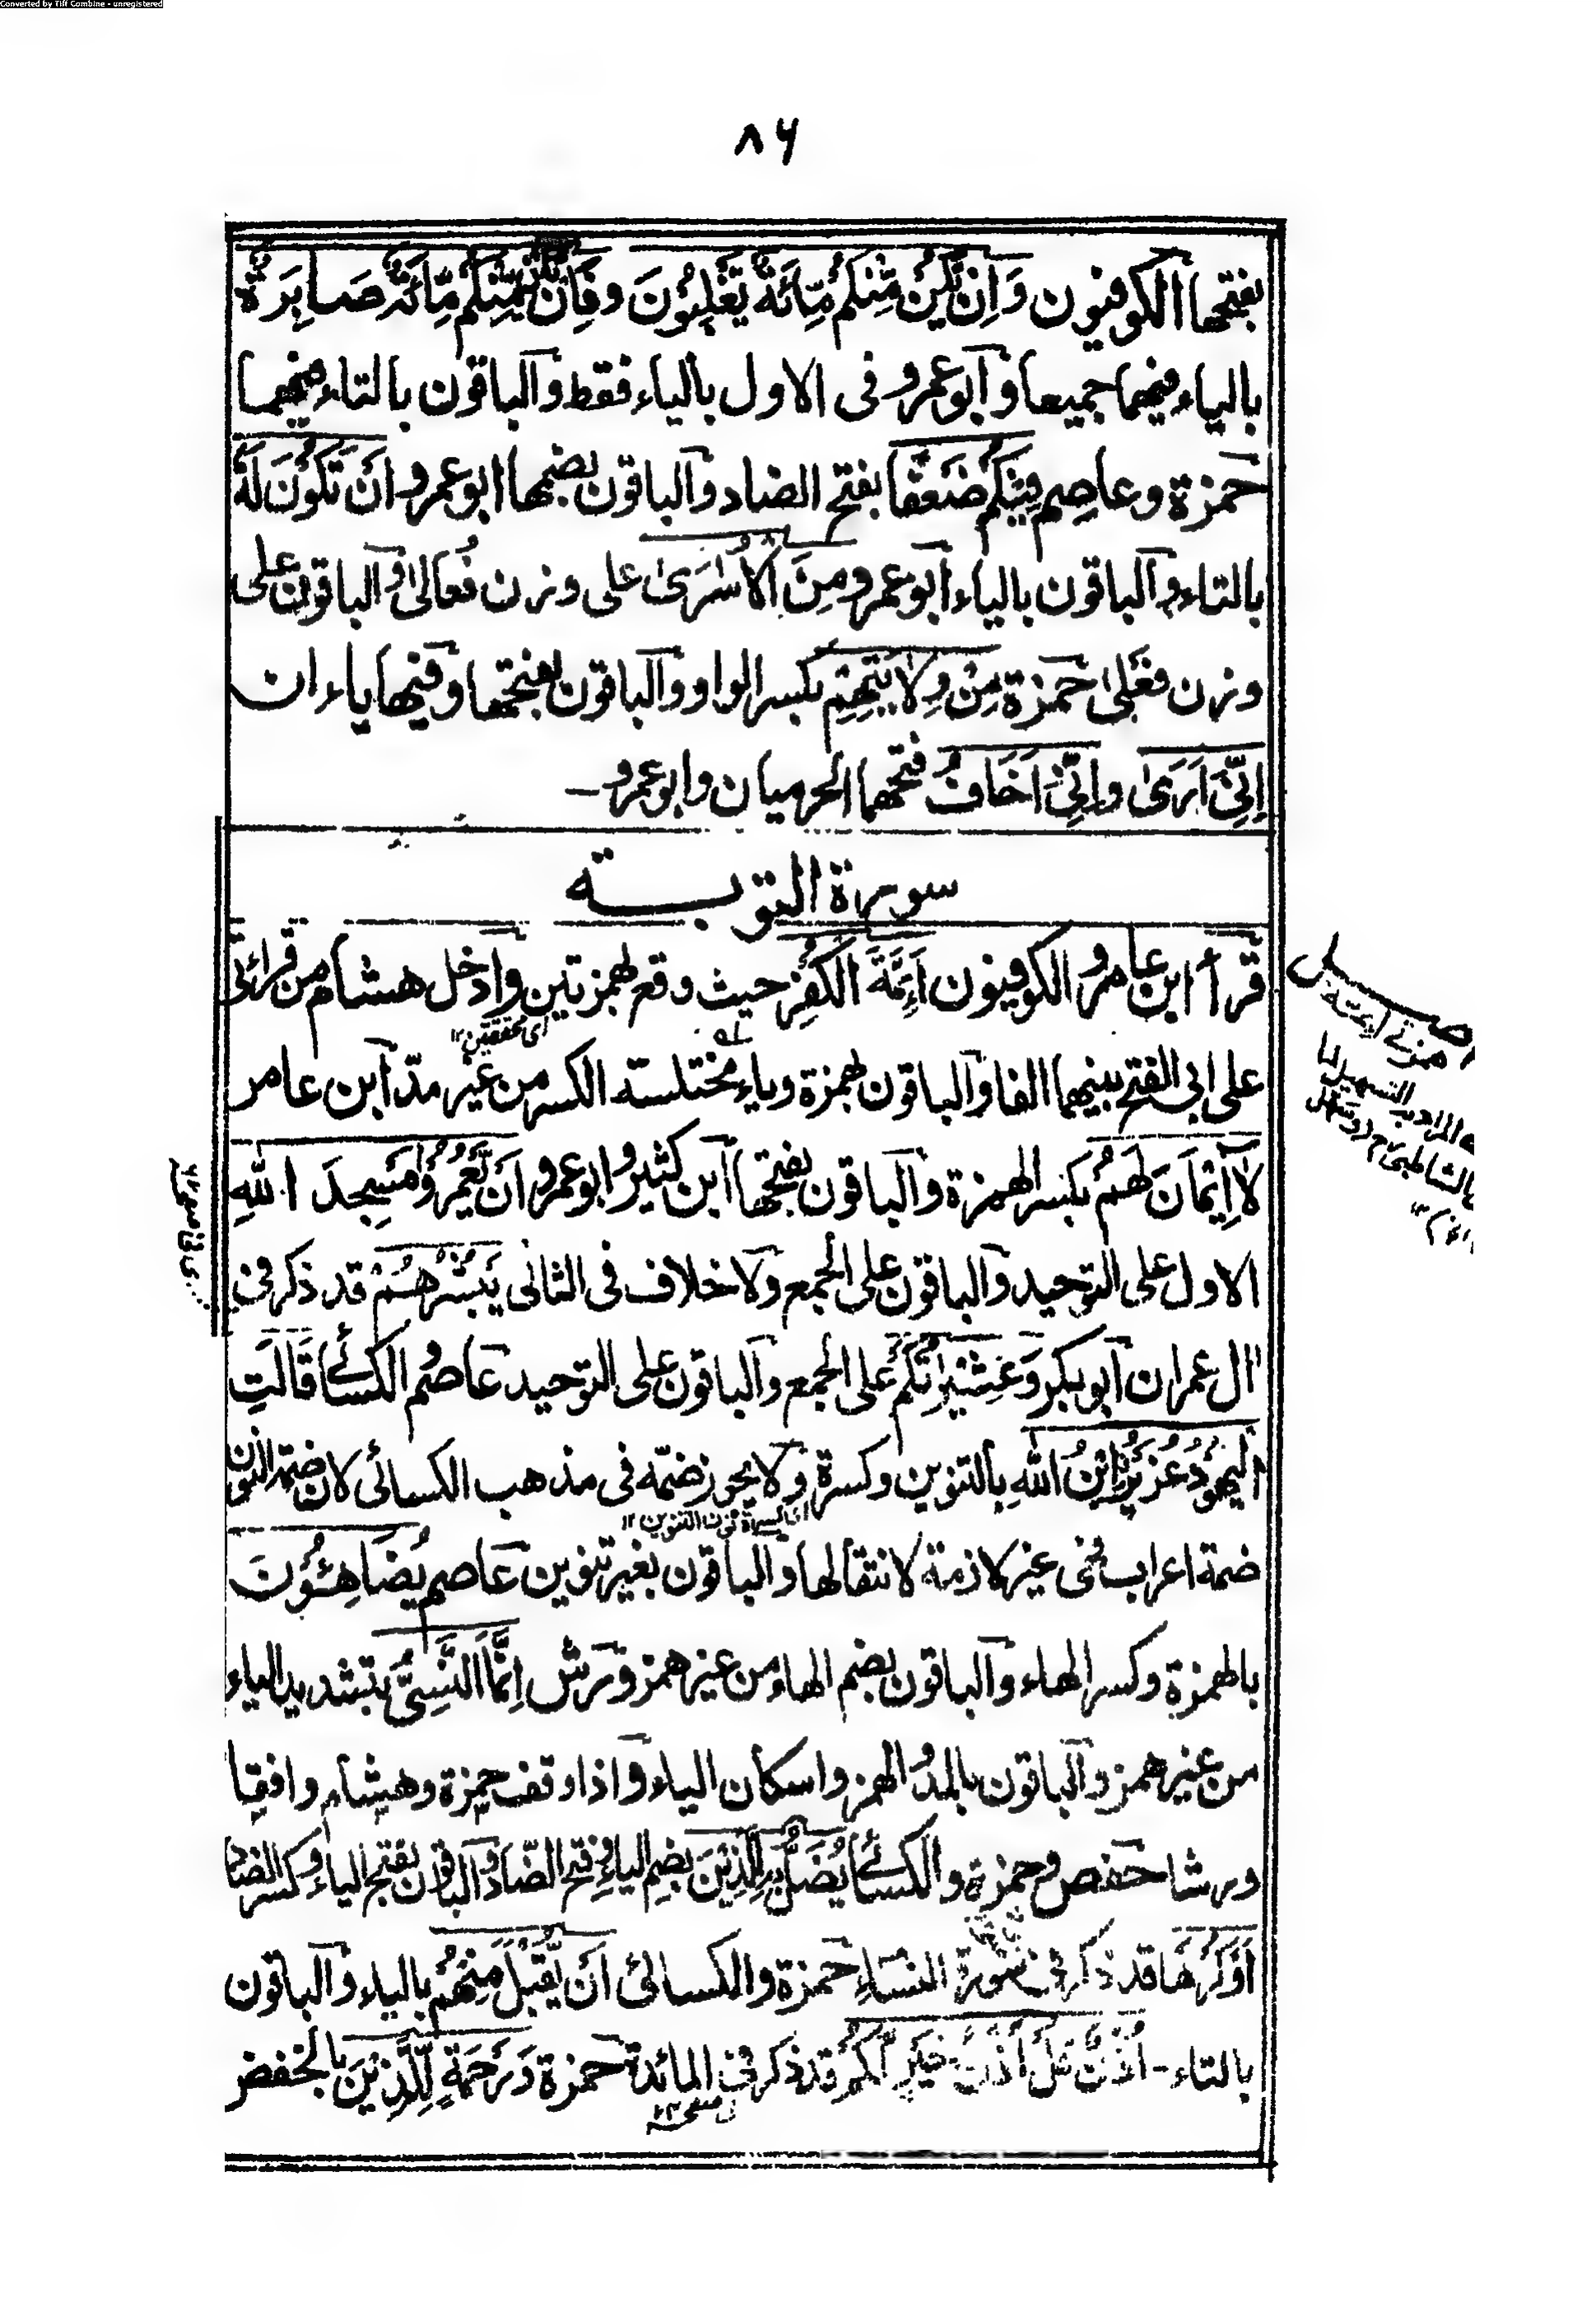 Converted by Tiff Combine - unregistered
٨٦
بفتحها الكوفيون وَاِنْ يَّكُنْ مِّنْكُمْ مِّائَةٌ يَّغْلِبُوْنَ و فَاِنْ يَّكُنْ مِّنْكُمْ مِّائَةٌ صَابِرَةٌ
بالياء فيهما جميعا وابو عمرو فى الاول بالياء فقط والباقون بالتاء فيهما
حمزة وعاصم فِيْكُمْ ضَعْفًا بفتح الضاد والباقون بضمها ابو عمرو اَنْ تَكُوْنَ لَهٗ
بالتاء والباقون بالياء ابو عمرو مِنَ الْاُسٰرٰى على وزن فُعالىٰ والباقون على
وزن فَعْلىٰ حمزة مِنْ وِلَايَتِهِمْ بكسر الواو والباقون بفتحها وفيها ياء ان
اِنِّىْٓ اَرٰى و اِنِّىْٓ اَخَافُ فتحهما الحرميان وابو عمرو ـ
سورة التوبـــة
قرأ ابن عامر والكوفيون اَئِمَّةَ الْكُفْرِ حيث وقع بهمزتين وادخل هشام من قرائتى
اى محققتين ١٢
على ابى الفتح بينهما الفا والباقون بهمزة وياء مختلسة الكسر من غير مدّ ابن عامر
لَآ اِيْمَانَ لَهُمْ بكسر الهمزة والباقون بفتحها ابن كثير وابو عمرو اَنْ يَّعْمُرُوْا مَسْجِدَ اللّٰهِ
الاول على التوحيد والباقون على الجمع ولا خلاف فى الثانى يُبَشِّرُهُمْ قد ذكر فى
اٰل عمران ابو بكر وَعَشِيْرَاتُكُمْ على الجمع والباقون على التوحيد عاصم والكسائى قَالَتِ
الْيَهُوْدُ عُزَيْرٌ ابْنُ اللّٰهِ بالتنوين وكسرة ولا يجوز ضمّه فى مذهب الكسائى لان ضمة النون
ضمة اعراب فهى غير لازمة لانتقالها والباقون بغير تنوين عاصم يُضَاهِئُوْنَ
بالهمزة وكسر الهاء والباقون بضم الهاء من غير همز ورش اِنَّمَا النَّسِىُّ بتشديد الياء
من غير همز والباقون بالمد والهمز واسكان الياء واذا وقف حمزة وهشام وافقا
ورشا حفص وحمزة والكسائى يُضَلُّ بِهِ الَّذِيْنَ بضم الياء وفتح الضاد والباقون بفتح الياء وكسر الضاد
اَوْ كَرْهًا قد ذكر فى سورة النساء حمزة والكسائى اَنْ يُّقْبَلَ مِنْهُمْ بالياء والباقون
بالتاء ـ اُذُنٌ قُلْ اُذُنُ خَيْرٍ لَّكُمْ قد ذكر فى المائدة حمزة وَرَحْمَةٍ لِّلَّذِيْنَ بالخفض